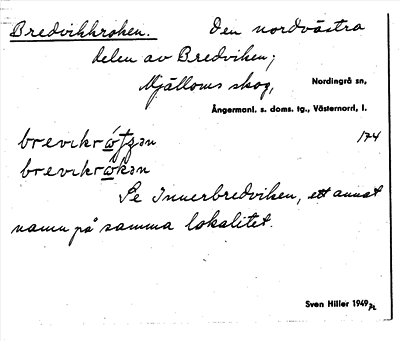 Bredvikkroken. Den nordvästra
delen av Bredviken;
Mjälloms skog, Nordingrå sn,
Ångermanl. s. doms. tg., Västernorrl. l.
174
brevikrå̱kən
Se Innerbredviken, ett annat
namn på samma lokalitet.
Sven Hiller 1949